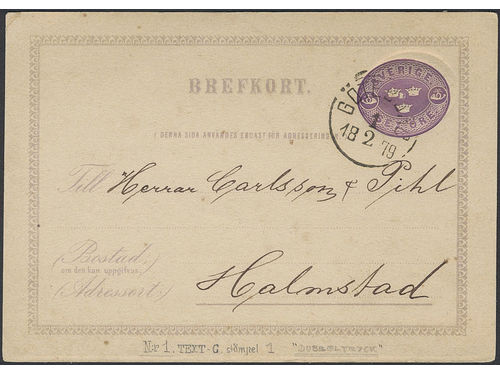 BREFKORT.
SVERIGE
SEX ÖRE
18 2 79
(DENNA SIDA ANVÄNDES ENDAST FÖR ADRESSERING
Till Herrar Carlsson & Pihl
(Bostad)
om den kan uppgifvas.
(Adressort:)
Halmstad
N:r 1. TEXT-G. stämpel 1 "DUBBELTRYCK"